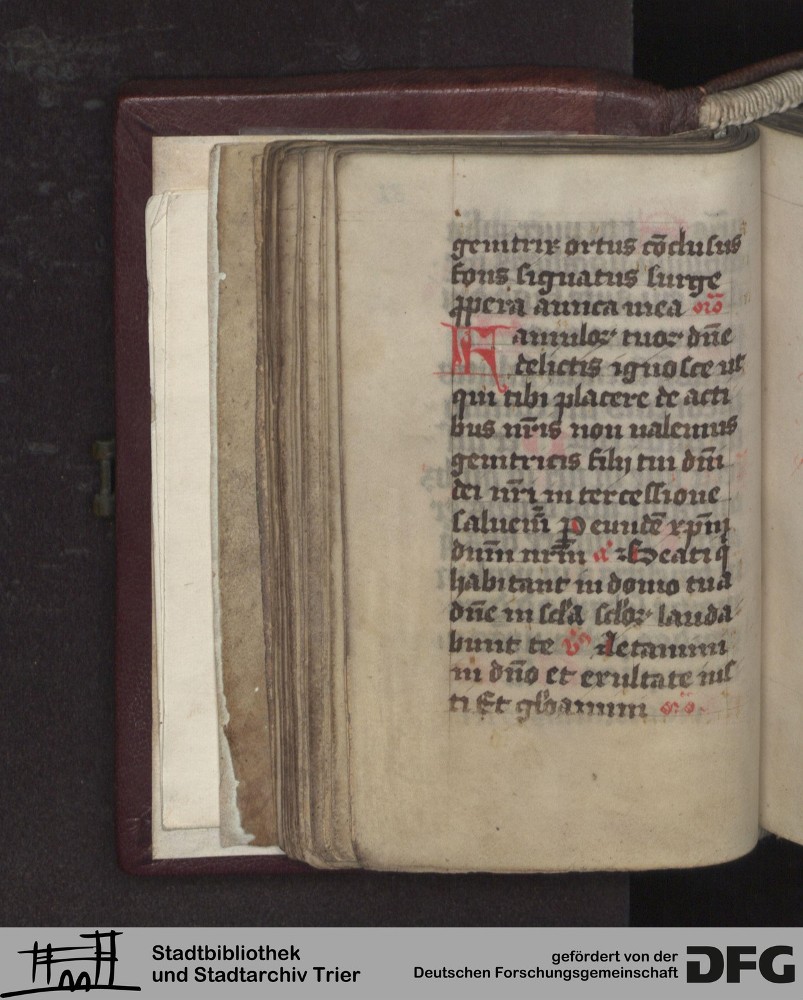 genitrix ortus cōclusus
fons signatus surge
ꝓpera amica mea oro
Famuloꝝ tuoꝝ dn̄e
delictis ignosce ut
qui tibi placere de acti
bus nr̄is non ualemus
genitricis filij tui dn̄i
dei nr̄i in tercessione
saluem̄ ꝑ eundē xp̄m
dnm̄ nrm̄ a Beati q̇
habitant in domo tua
dn̄e in scl̄a scl̄oꝝ lauda
bunt te v̄ Letamini
in dn̄o et exultate ius
ti Et gl̄oamini
Stadtbibliothek
und Stadtarchiv Trier
gefördert von der
Deutschen Forschungsgemeinschaft
DFG